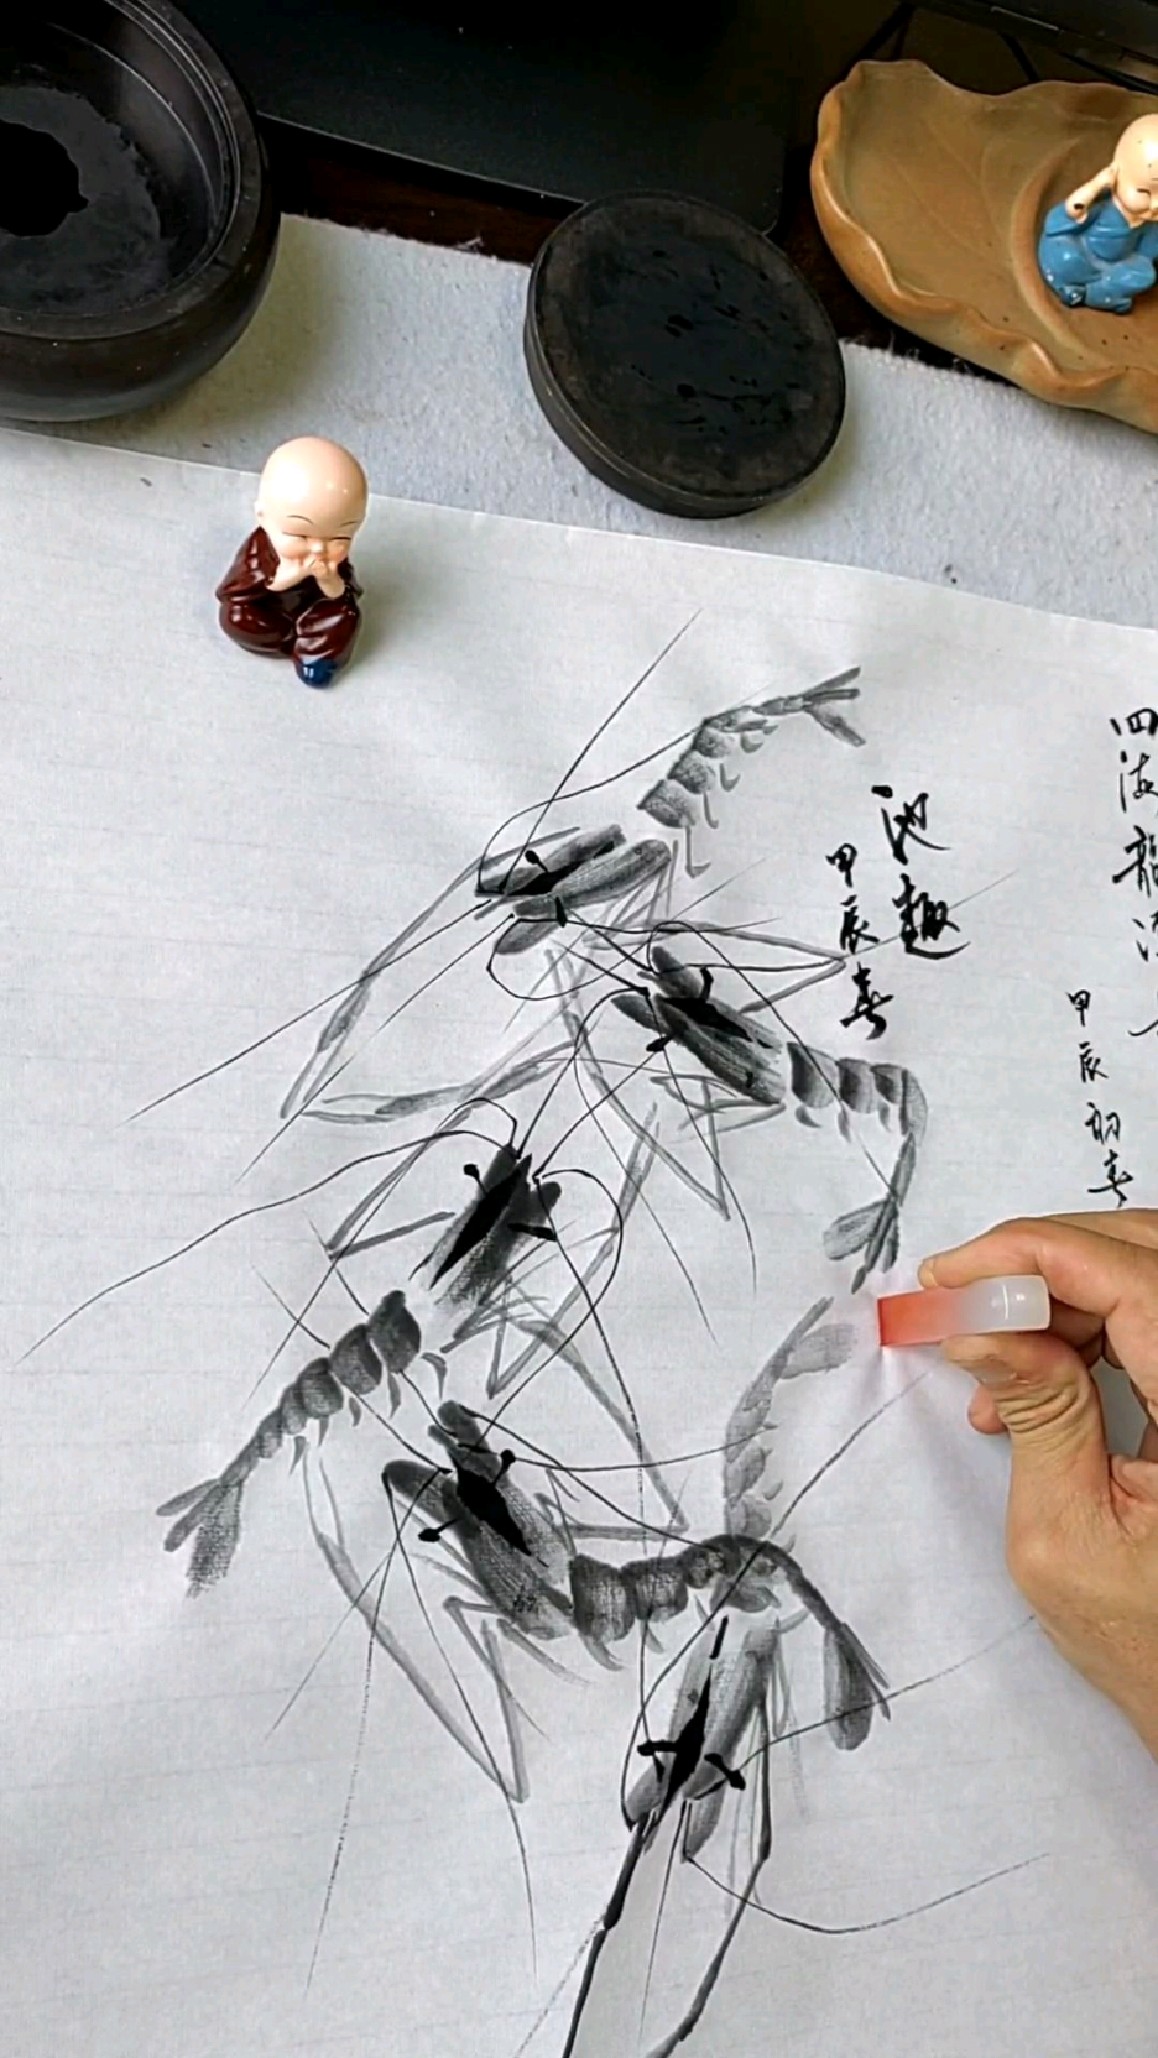 四海龍
甲辰初春
池趣
甲辰春